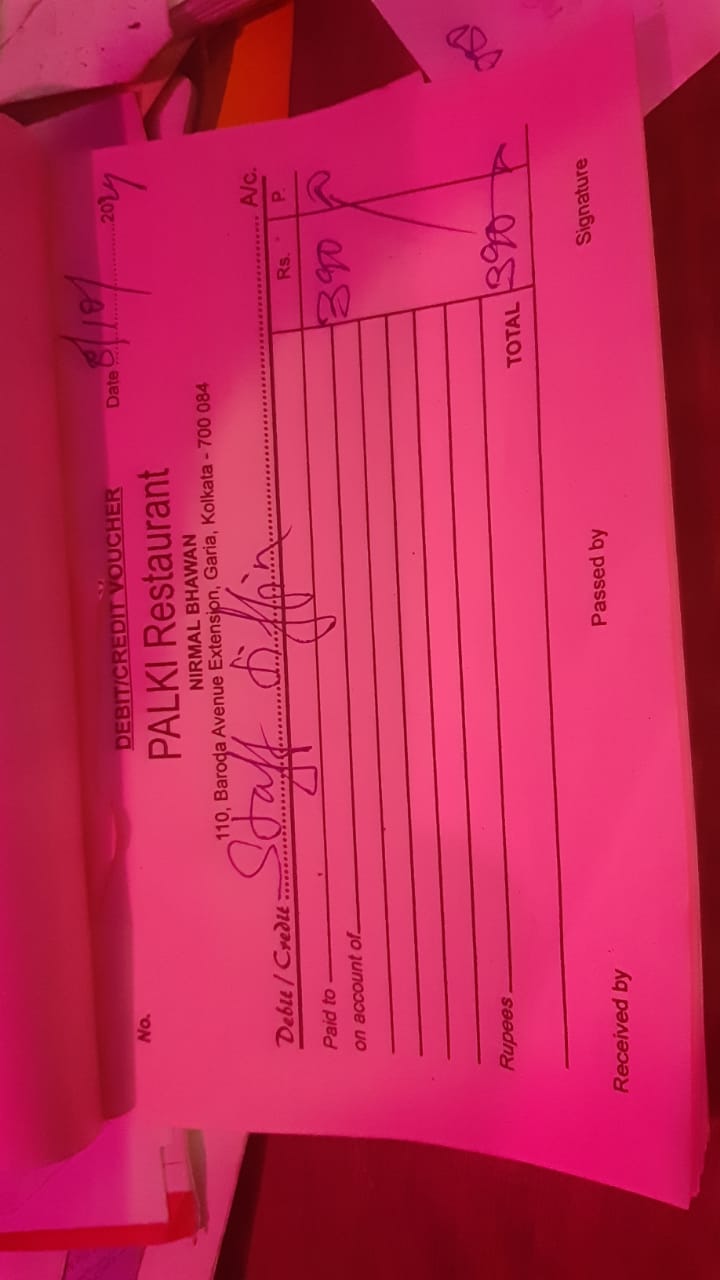 DEBIT/CREDIT VOUCHER
No. Date 8/10/ 2024
PALKI Restaurant
NIRMAL BHAWAN
110, Baroda Avenue Extension, Garia, Kolkata - 700 084
Debit / Credit Staff tiffin A/c.
Rs. P.
Paid to 390
on account of
Rupees TOTAL 390
Received by Passed by Signature